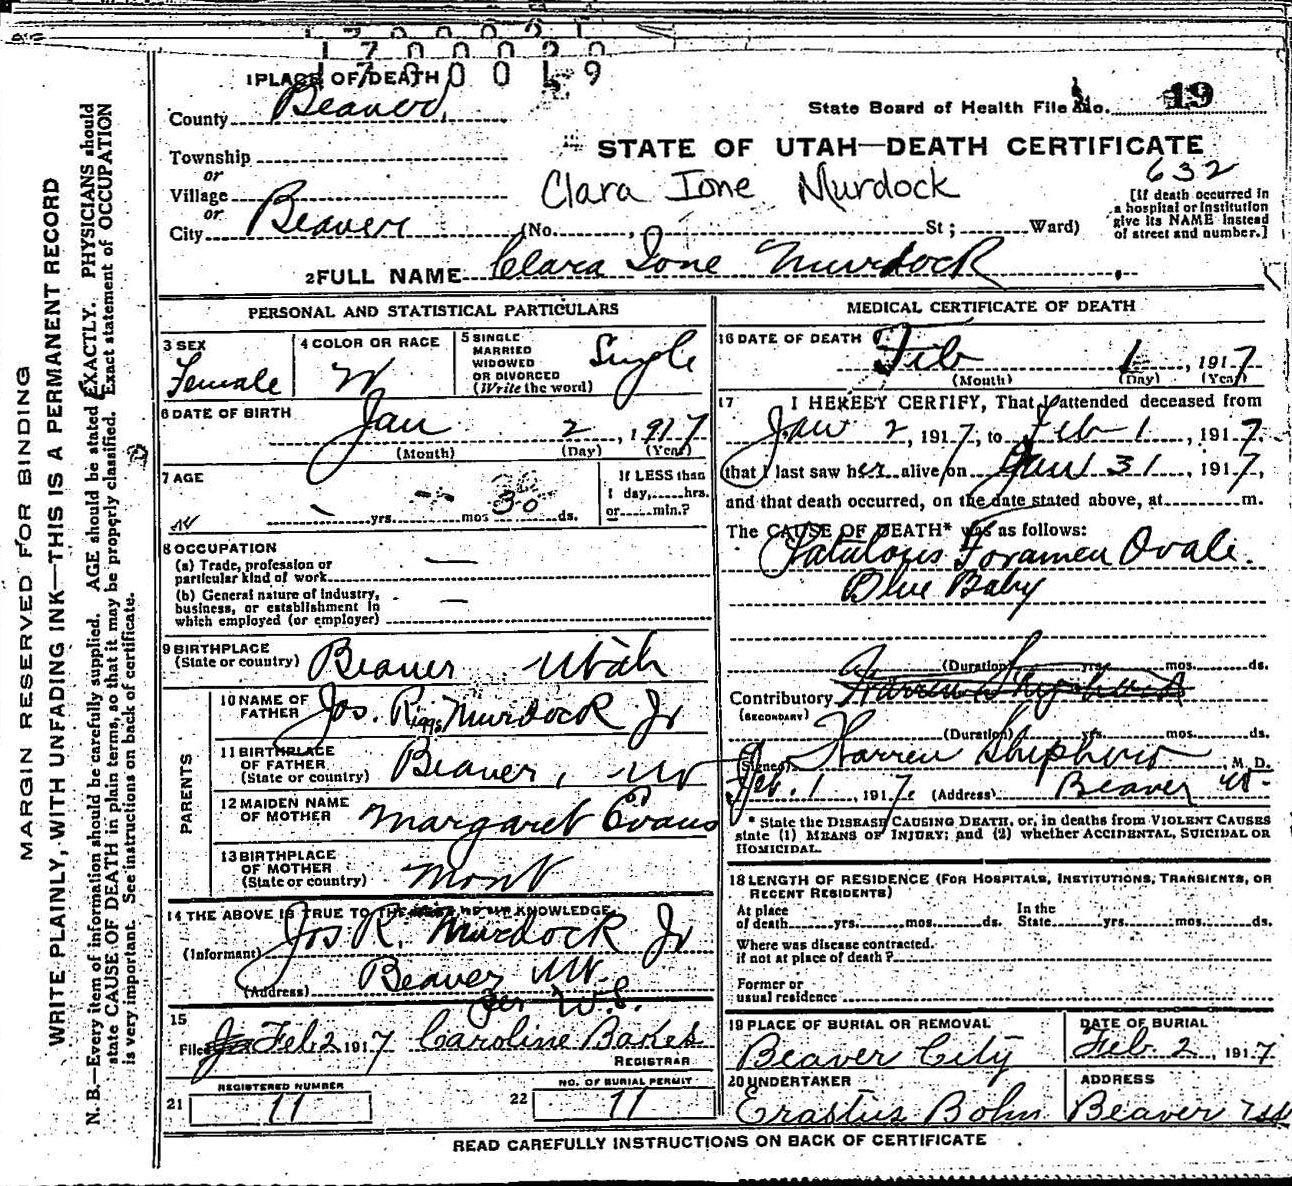 1700019
1 PLACE OF DEATH
County Beaver
State Board of Health File No. 19
Township
or
Village
or
City Beaver
STATE OF UTAH—DEATH CERTIFICATE
632
Clara Ione Murdock
(No. , St ; Ward)
[If death occurred in
a hospital or institution
give its NAME instead
of street and number.]
2 FULL NAME Clara Ione Murdock
PERSONAL AND STATISTICAL PARTICULARS
3 SEX
Female
4 COLOR OR RACE
W
5 SINGLE
MARRIED
WIDOWED
OR DIVORCED
(Write the word)
Single
6 DATE OF BIRTH
Jan 2, 1917
(Month) (Day) (Year)
7 AGE
- yrs. - mos 30 ds.
If LESS than
1 day, hrs.
or min.?
8 OCCUPATION
(a) Trade, profession or
particular kind of work —
(b) General nature of industry,
business, or establishment in
which employed (or employer) —
9 BIRTHPLACE
(State or country) Beaver Utah
PARENTS
10 NAME OF
FATHER Jos. Riggs Murdock Jr
11 BIRTHPLACE
OF FATHER
(State or country) Beaver, Ut
12 MAIDEN NAME
OF MOTHER Margaret Evans
13 BIRTHPLACE
OF MOTHER
(State or country) Mont
14 THE ABOVE IS TRUE TO THE BEST OF MY KNOWLEDGE
(Informant) Jos R. Murdock Jr
(Address) Beaver Ut.
per W.S.
15
Filed Feb 2 1917 Caroline Bakes
REGISTRAR
REGISTERED NUMBER
21 11
NO. OF BURIAL PERMIT
22 11
MEDICAL CERTIFICATE OF DEATH
16 DATE OF DEATH
Feb 1, 1917
(Month) (Day) (Year)
17 I HEREBY CERTIFY, That I attended deceased from
Jan 2, 1917, to Feb 1, 1917.
that I last saw her alive on Jan 31, 1917,
and that death occurred, on the date stated above, at m.
The CAUSE OF DEATH* was as follows:
Patulous Foramen Ovale.
Blue Baby
(Duration) yrs. mos. ds.
Contributory Warren Shepherd
(SECONDARY)
(Duration) yrs. mos. ds.
(Signed) Warren Shepherd, M. D.
Feb. 1, 1917. (Address) Beaver Ut.
* State the DISEASE CAUSING DEATH, or, in deaths from VIOLENT CAUSES
state (1) MEANS OF INJURY; and (2) whether ACCIDENTAL, SUICIDAL OR
HOMICIDAL.
18 LENGTH OF RESIDENCE (FOR HOSPITALS, INSTITUTIONS, TRANSIENTS, OR
RECENT RESIDENTS)
At place
of death yrs. mos. ds.
In the
State yrs. mos. ds.
Where was disease contracted.
if not at place of death?
Former or
usual residence
19 PLACE OF BURIAL OR REMOVAL
Beaver City
DATE OF BURIAL
Feb. 2, 1917.
20 UNDERTAKER
Erastus Bohn
ADDRESS
Beaver
READ CAREFULLY INSTRUCTIONS ON BACK OF CERTIFICATE
MARGIN RESERVED FOR BINDING
WRITE PLAINLY, WITH UNFADING INK—THIS IS A PERMANENT RECORD
N. B.—Every item of information should be carefully supplied. AGE should be stated EXACTLY. PHYSICIANS should
state CAUSE OF DEATH in plain terms, so that it may be properly classified. Exact statement of OCCUPATION
is very important. See instructions on back of certificate.